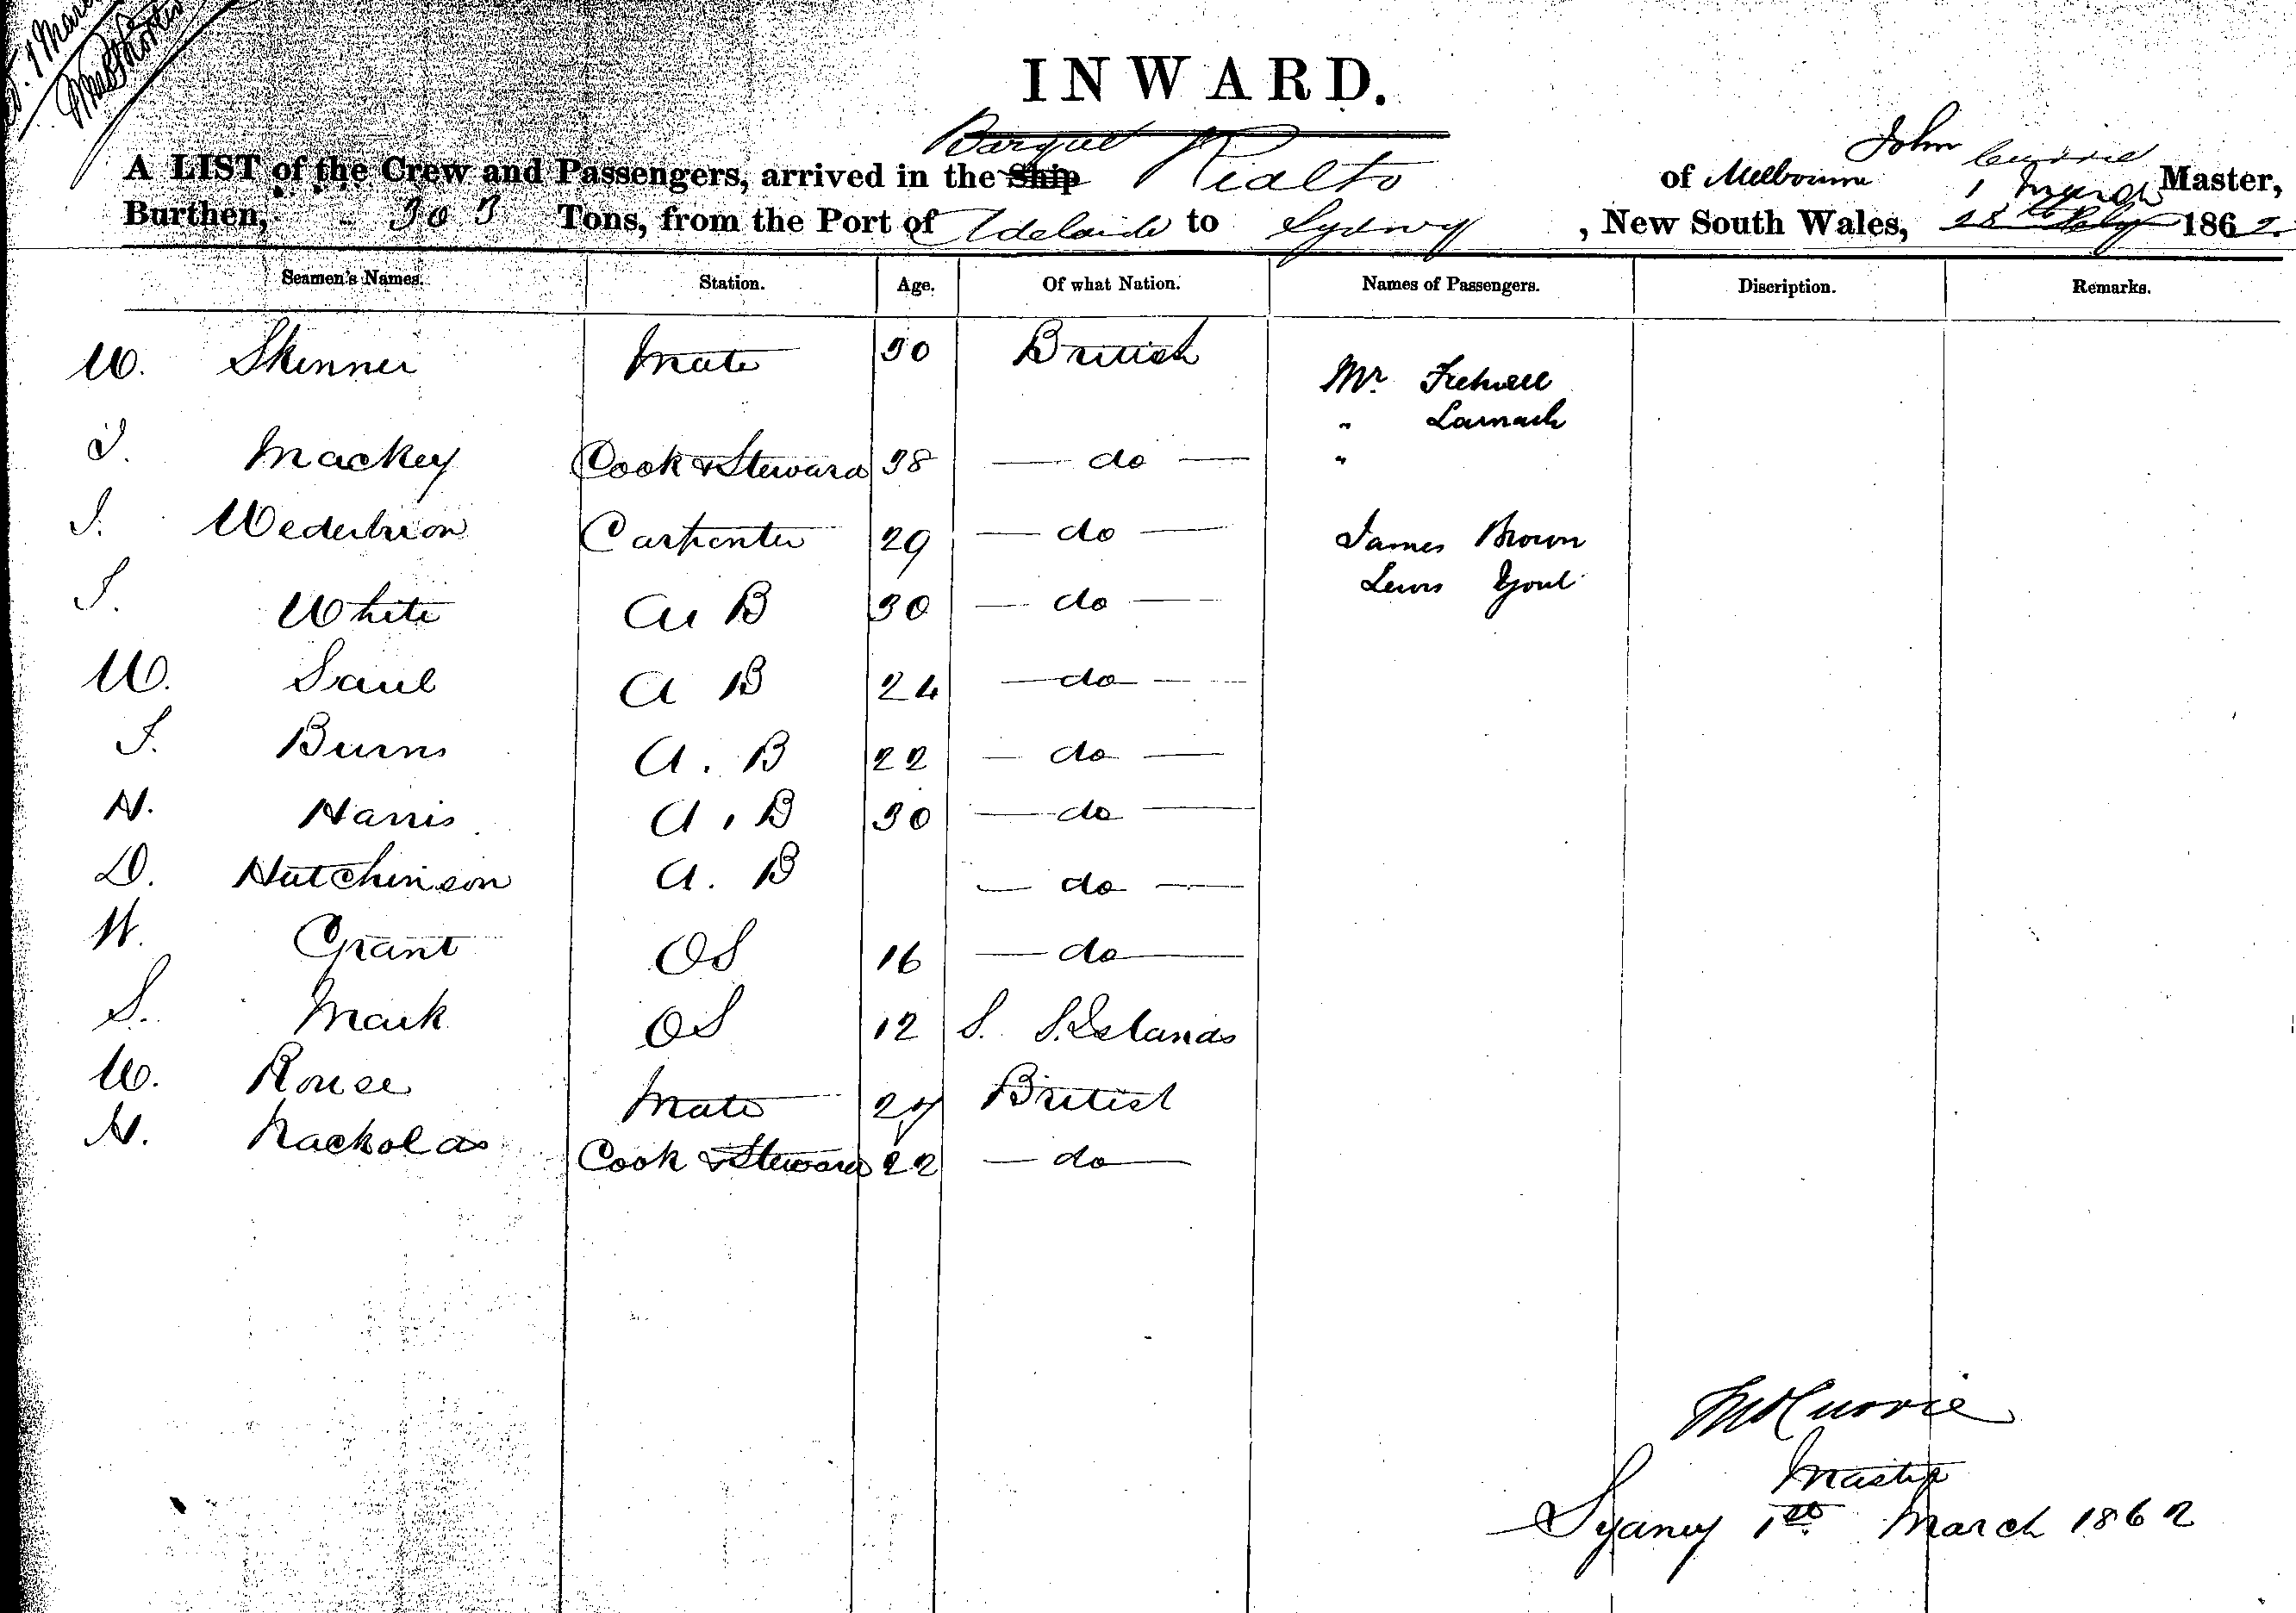 1 March
INWARD.
A LIST of the Crew and Passengers, arrived in the Ship Barque Rialto of Melbourne John Currie Master,
Burthen, 303 Tons, from the Port of Adelaide to Sydney, New South Wales, 28th Feby 1 March 1862.
Seamen's Names. Station. Age. Of what Nation. Names of Passengers. Discription. Remarks.
W. Skinner Mate 30 British Mr.
" Larnach
J. Mackey Cook & Steward 38 do "
J. Carpenter 29 do James Brown
J. White A B 30 do Lewis Youl
W. Saul A B 24 do
J. Burns A. B 22 do
H. Harris A. B 30 do
D. Hutchinson A. B do
W. Grant OS 16 do
S. Mark OS 12 S. S. Islands
W. Rouse Mate 27 British
H. Nackolas Cook & Steward 22 do
Currie
Master
Sydney 1st March 1862